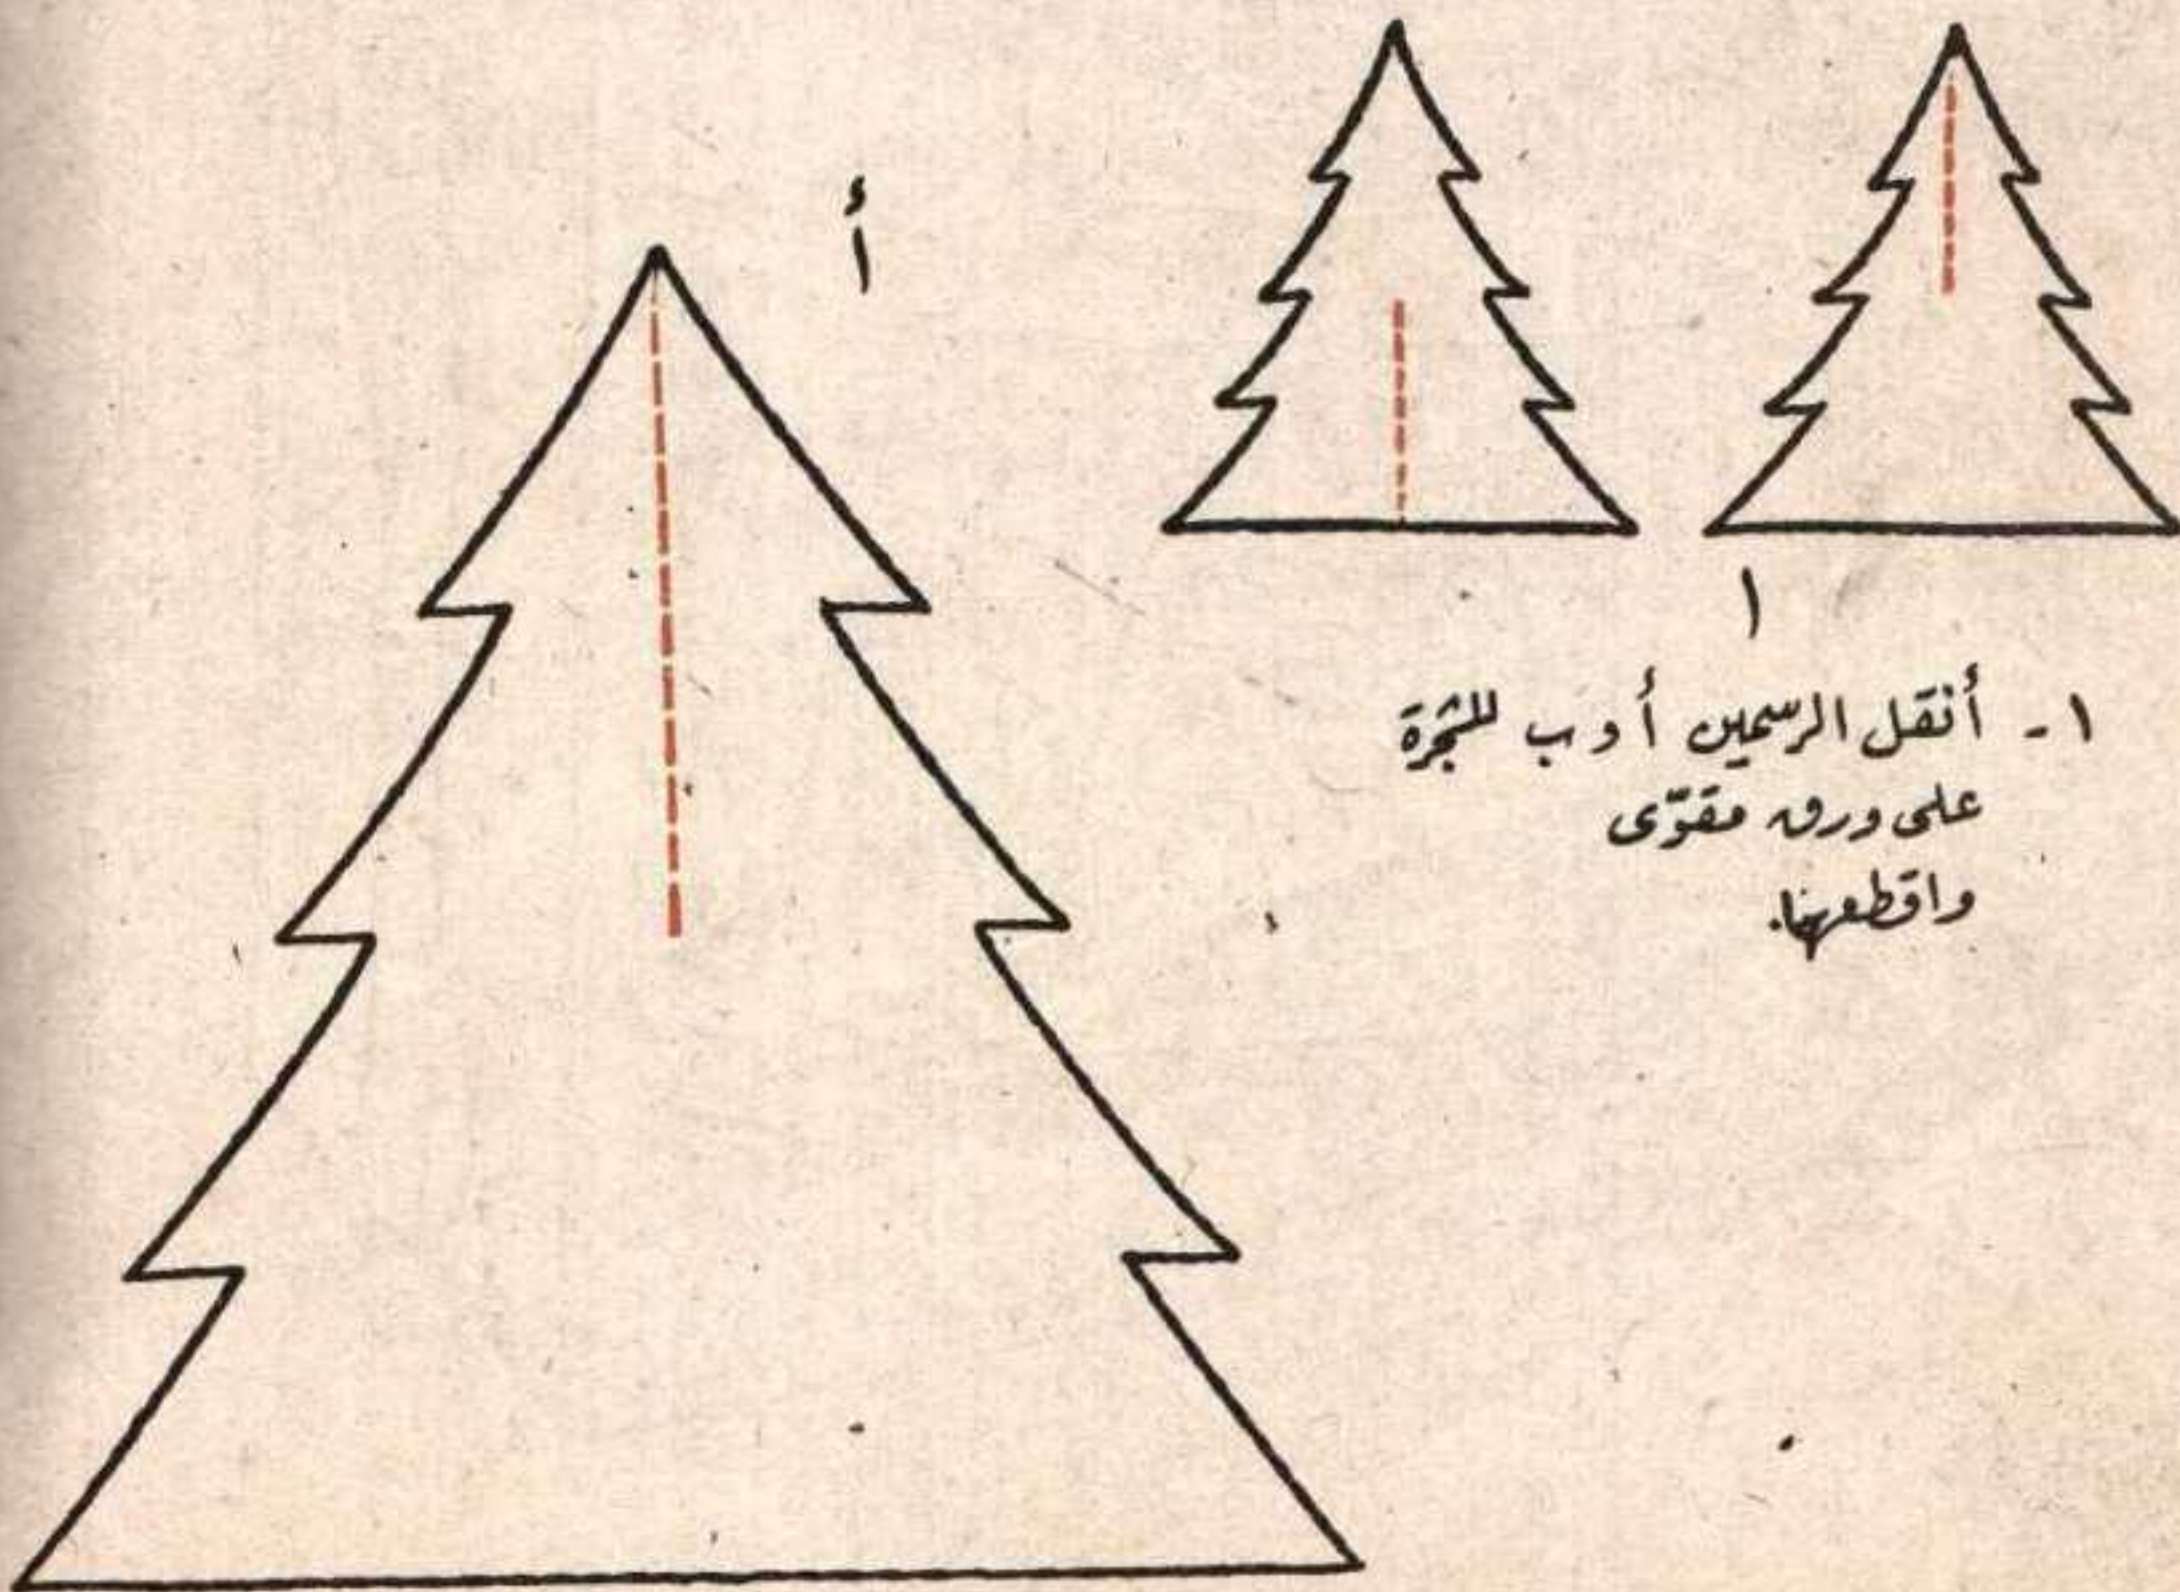 أ
١
١ - أنقل الرسمين أ و ب للشجرة
على ورق مقوّى
واقطعهما.